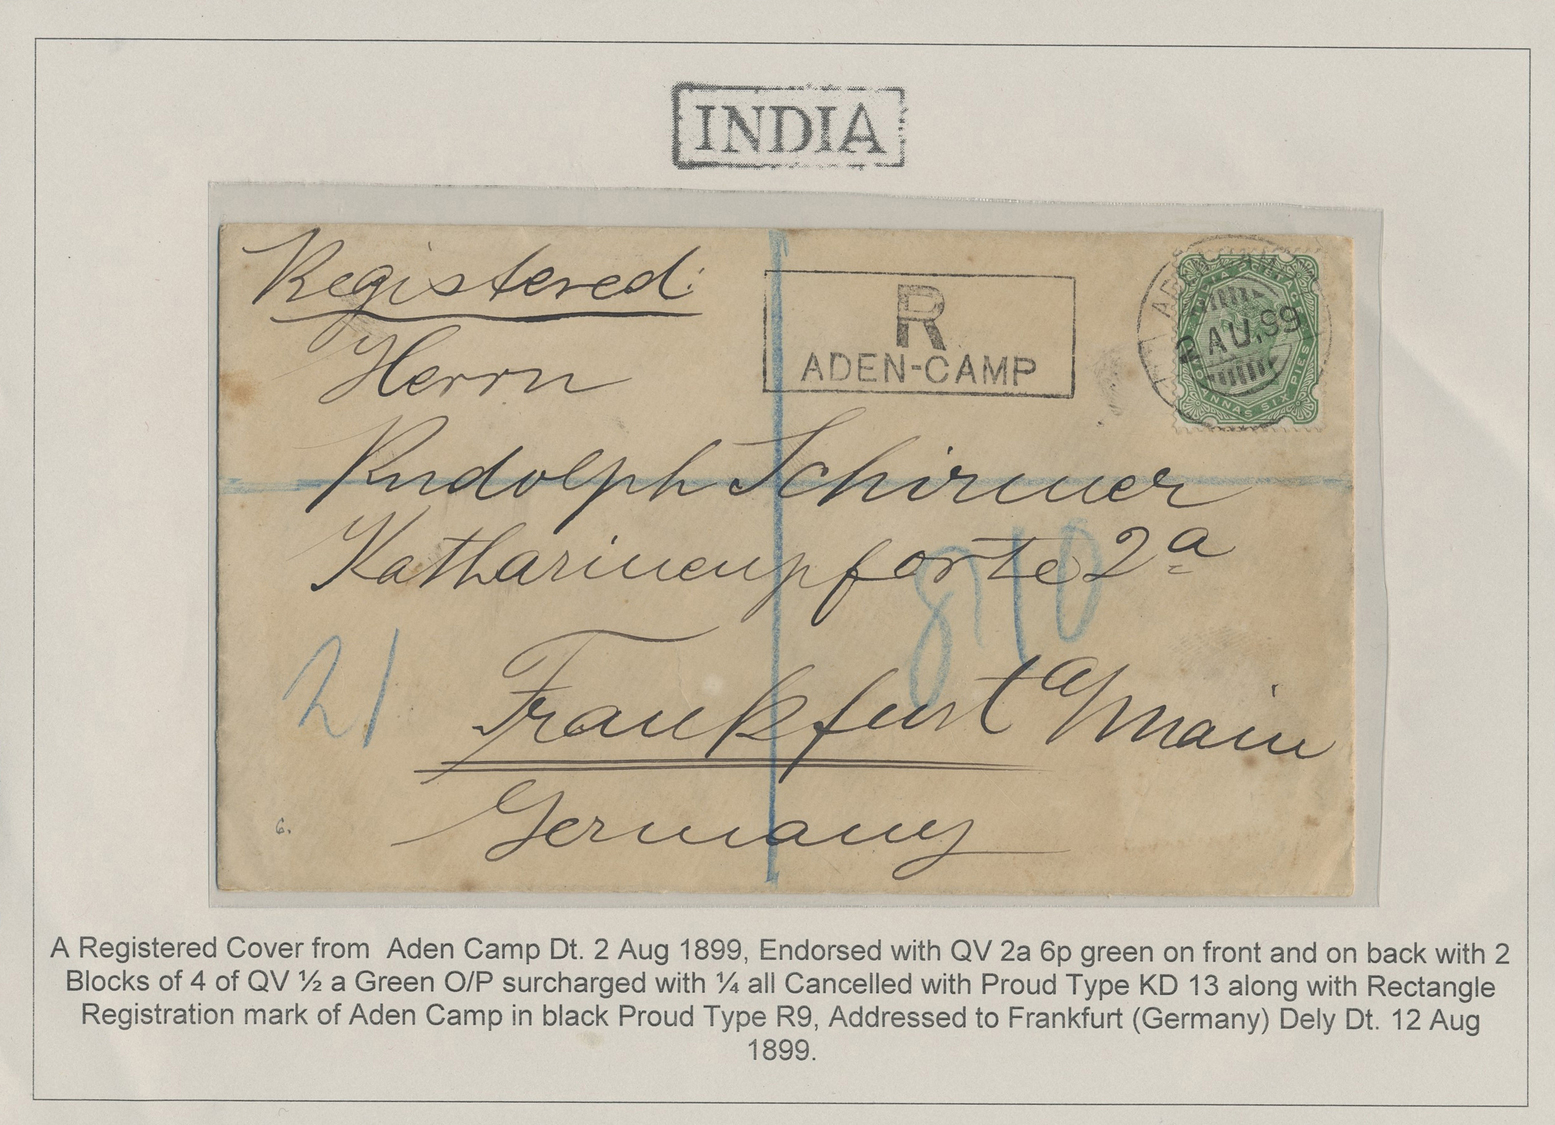 INDIA
Registered:
Herrn
Rudolph Schirmer
Katharinenpforte 2a
Frankfurt a/Main
Germany
R
ADEN-CAMP
2 AU.99
ANNAS SIX PIES
8710
21
6.
A Registered Cover from Aden Camp Dt. 2 Aug 1899, Endorsed with QV 2a 6p green on front and on back with 2
Blocks of 4 of QV ½ a Green O/P surcharged with ¼ all Cancelled with Proud Type KD 13 along with Rectangle
Registration mark of Aden Camp in black Proud Type R9, Addressed to Frankfurt (Germany) Dely Dt. 12 Aug
1899.